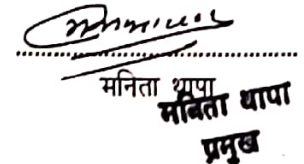 मनिता थापा
मनिता थापा
प्रमुख